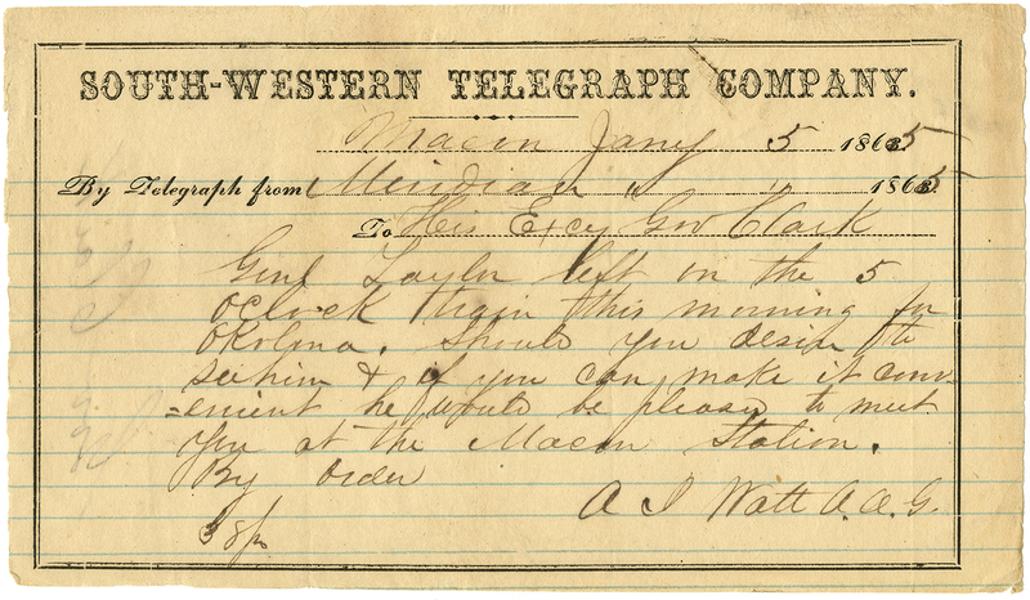 SOUTH-WESTERN TELEGRAPH COMPANY.
Macon Jany 5 1865
By Telegraph from Meridian " " 1865
To His Excy Gov Clark
Genl Taylor left on the 5
oclock train this morning for
Okolona. Should you desire to
see him & if you can make it conv-
=enient he would be pleased to meet
you at the Macon Station.
By order
A J Watt A.A.G.